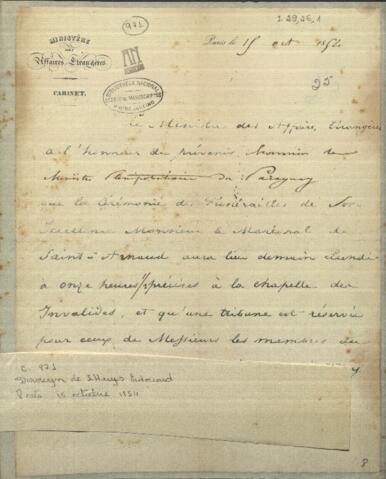 I-29,26,1
972
MINISTÈRE
DES
Affaires Étrangères
CABINET.
Paris le 15 oct 1854
BIBLIOTHECA NACIONAL
RIO DE JANEIRO
25
Le Ministre des Affaires Étrangères
a l'honneur de prévenir Monsieur le
Ministre du Paraguay
que la Cérémonie des Funérailles de Son
Excellence Monsieur le Maréchal de
Saint-Arnaud aura lieu demain Lundi
à onze heures précises à la chapelle des
Invalides, et qu'une tribune est réservée
pour ceux de Messieurs les membres du
C. 972
Drouyn de Lhuys, Edouard
Paris 15 octubre 1854
8